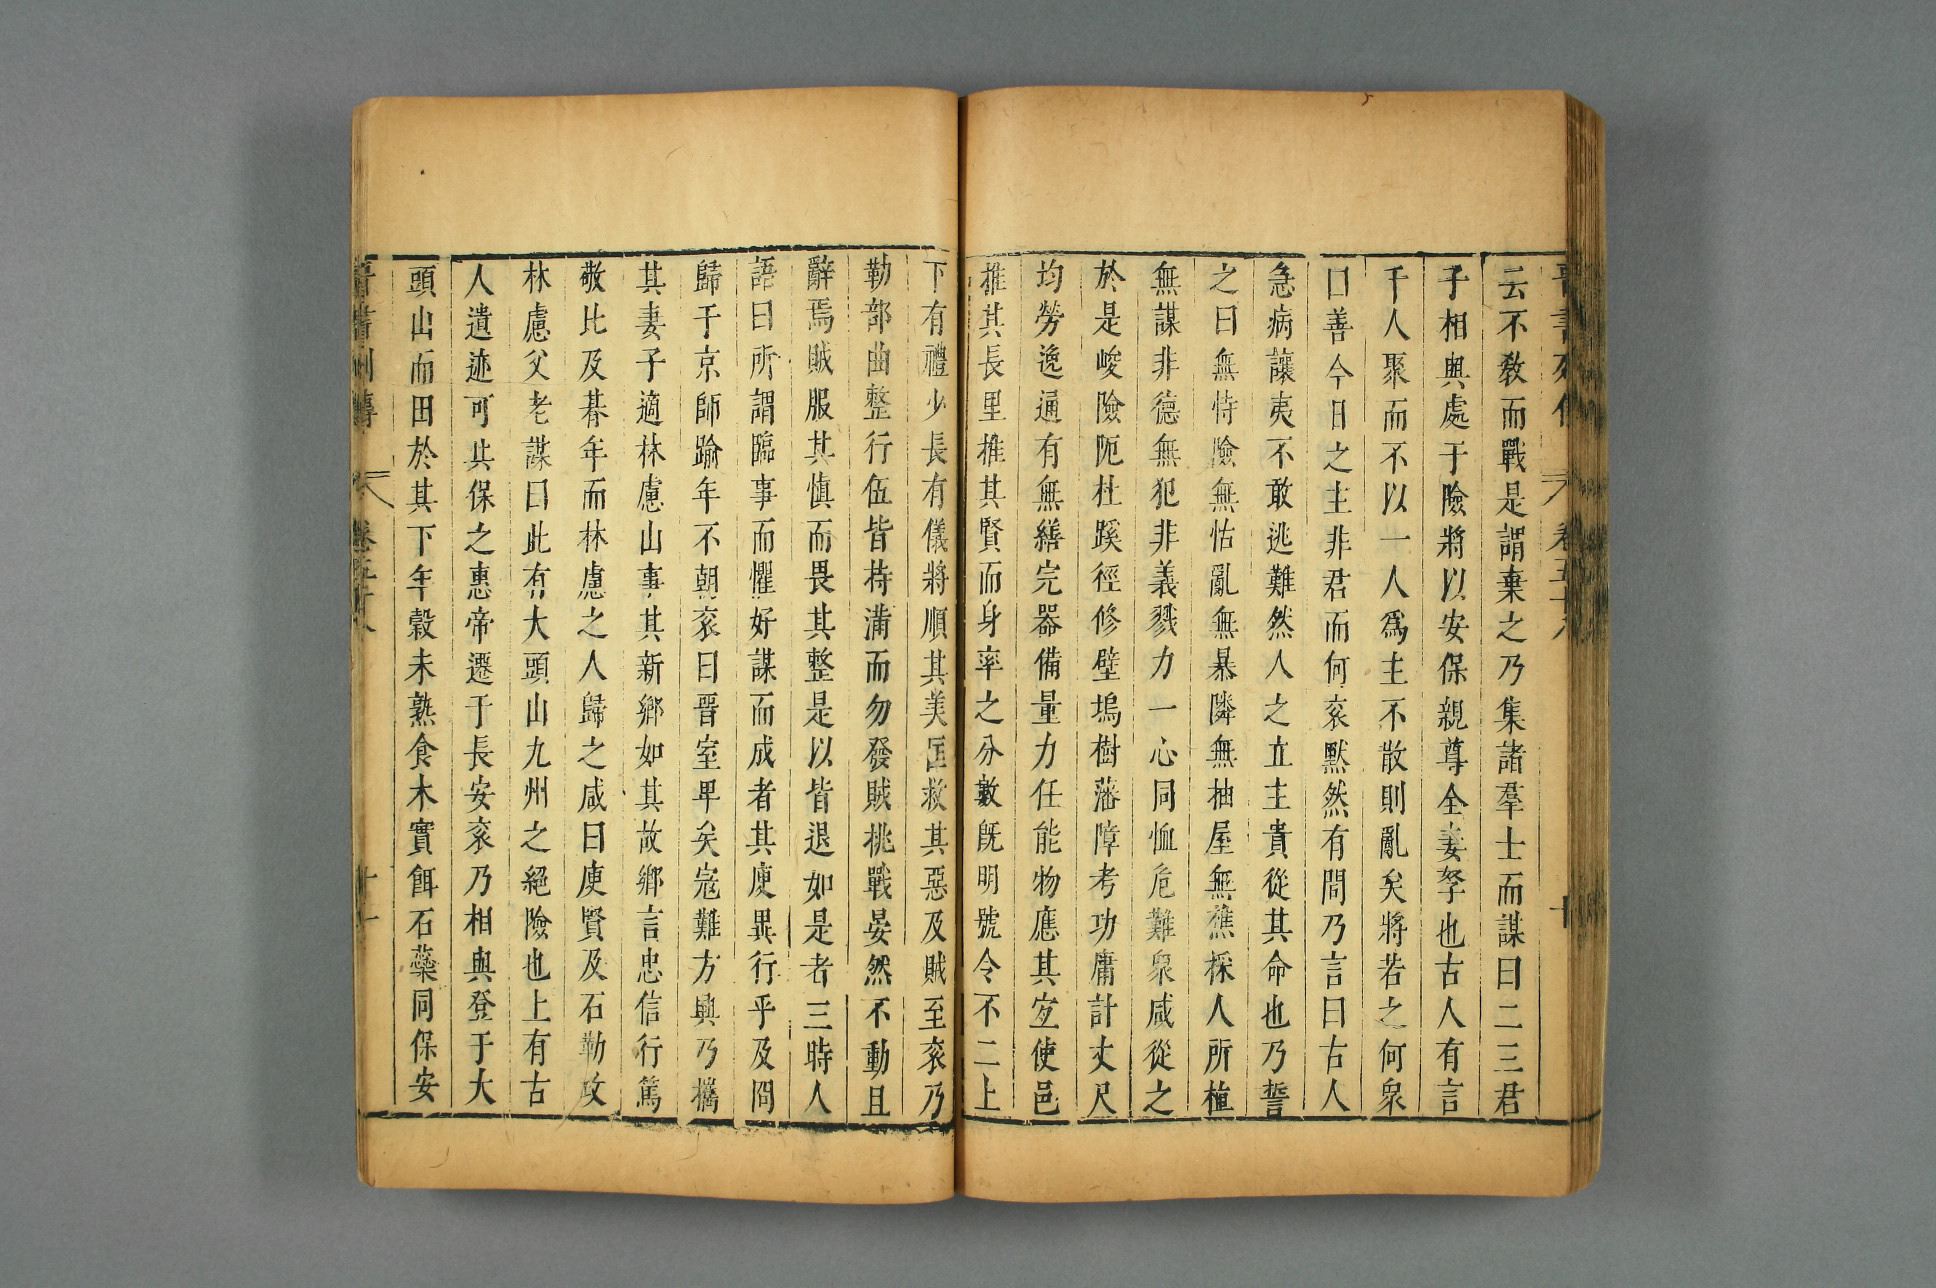 晉書列傳 卷五十八 十
云不敎而戰是謂棄之乃集諸羣士而謀曰二三君
子相與處于險將以安保親尊全妻孥也古人有言
千人聚而不以一人爲主不散則亂矣將若之何衆
曰善今日之主非君而何衮默然有間乃言曰古人
急病讓夷不敢逃難然人之立主貴從其命也乃誓
之曰無恃險無怙亂無暴隣無抽屋無樵採人所植
無謀非德無犯非義戮力一心同恤危難衆咸從之
於是峻險阨杜蹊徑修壁塢樹藩障考功庸計丈尺
均勞逸通有無繕完器備量力任能物應其宜使邑
推其長里推其賢而身率之分數旣明號令不二上
下有禮少長有儀將順其美匡救其惡及賊至衮乃
勒部曲整行伍皆持滿而勿發賊挑戰晏然不動且
辭焉賊服其愼而畏其整是以皆退如是者三時人
語曰所謂臨事而懼好謀而成者其庾異行乎及冏
歸于京師踰年不朝衮曰晉室卑矣寇難方興乃攜
其妻子適林慮山事其新鄉如其故鄉言忠信行篤
敬比及朞年而林慮之人歸之咸曰庾賢及石勒攻
林慮父老謀曰此有大頭山九州之絕險也上有古
人遺迹可共保之惠帝遷于長安衮乃相與登于大
頭山而田於其下年穀未熟食木實餌石蘂同保安
晉書列傳 卷五十八 十一